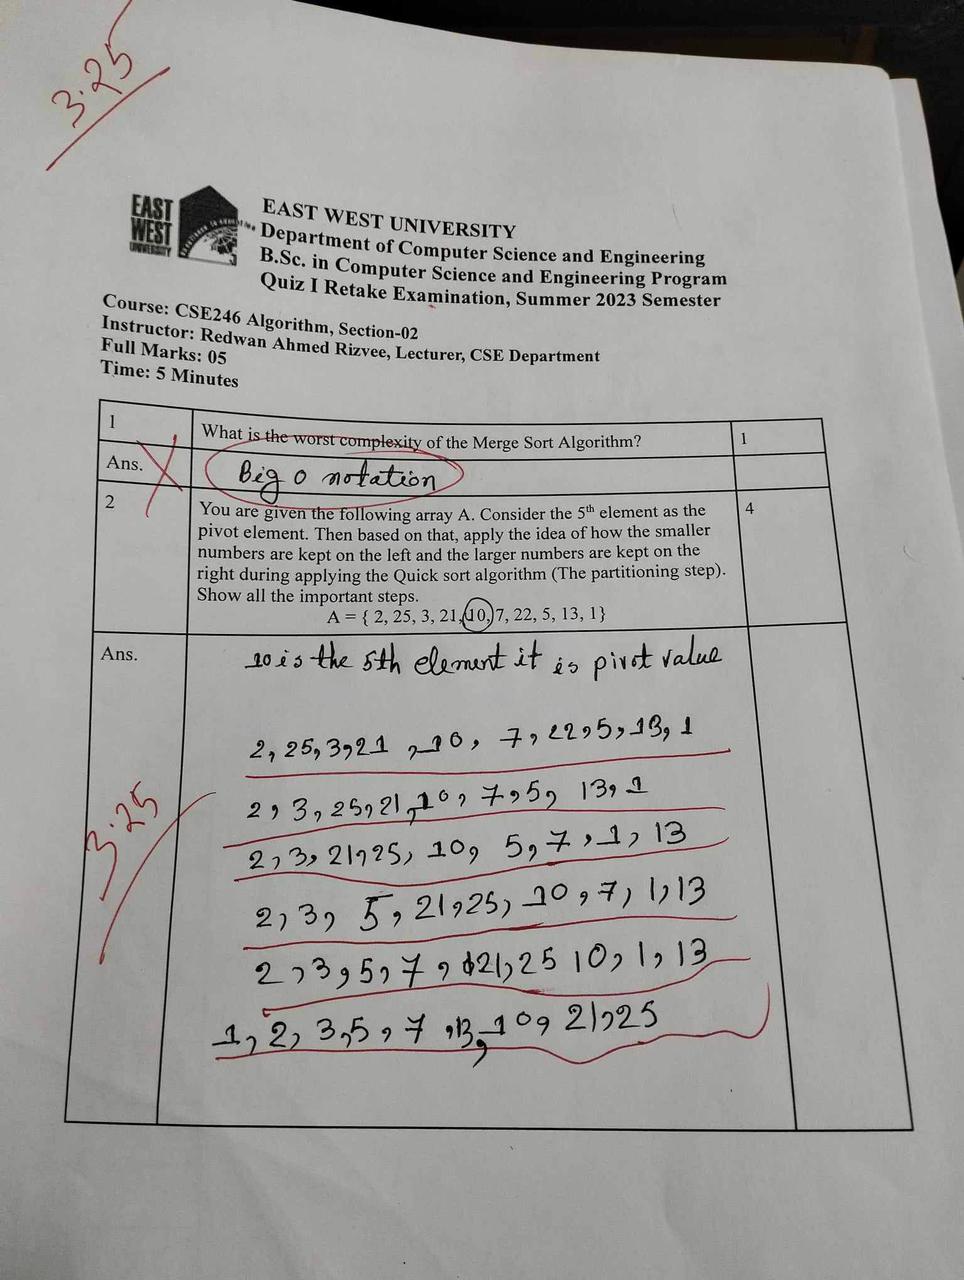 3.25
EAST
WEST
UNIVERSITY
EAST WEST UNIVERSITY
Department of Computer Science and Engineering
B.Sc. in Computer Science and Engineering Program
Quiz I Retake Examination, Summer 2023 Semester
Course: CSE246 Algorithm, Section-02
Instructor: Redwan Ahmed Rizvee, Lecturer, CSE Department
Full Marks: 05
Time: 5 Minutes
1 What is the worst complexity of the Merge Sort Algorithm? 1
Ans. Big O notation
2 You are given the following array A. Consider the 5th element as the 4
pivot element. Then based on that, apply the idea of how the smaller
numbers are kept on the left and the larger numbers are kept on the
right during applying the Quick sort algorithm (The partitioning step).
Show all the important steps.
A = { 2, 25, 3, 21, 10, 7, 22, 5, 13, 1}
Ans. 10 is the 5th element it is pivot value
2, 25, 3, 21, 10, 7, 22, 5, 13, 1
2, 3, 25, 21, 10, 7, 5, 13, 1
3.25
2, 3, 21, 25, 10, 5, 7, 1, 13
2, 3, 5, 21, 25, 10, 7, 1, 13
2, 3, 5, 7, 21, 25 10, 1, 13
1, 2, 3, 5, 7, 13, 10, 21, 25